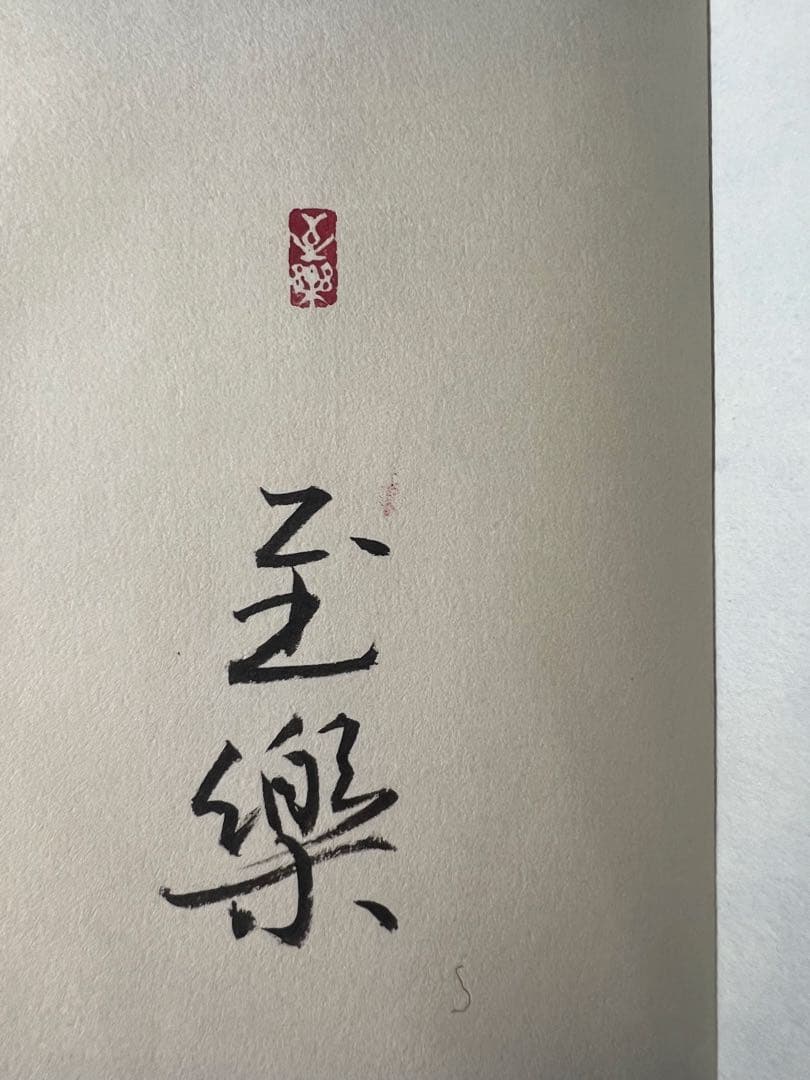 至樂
至樂